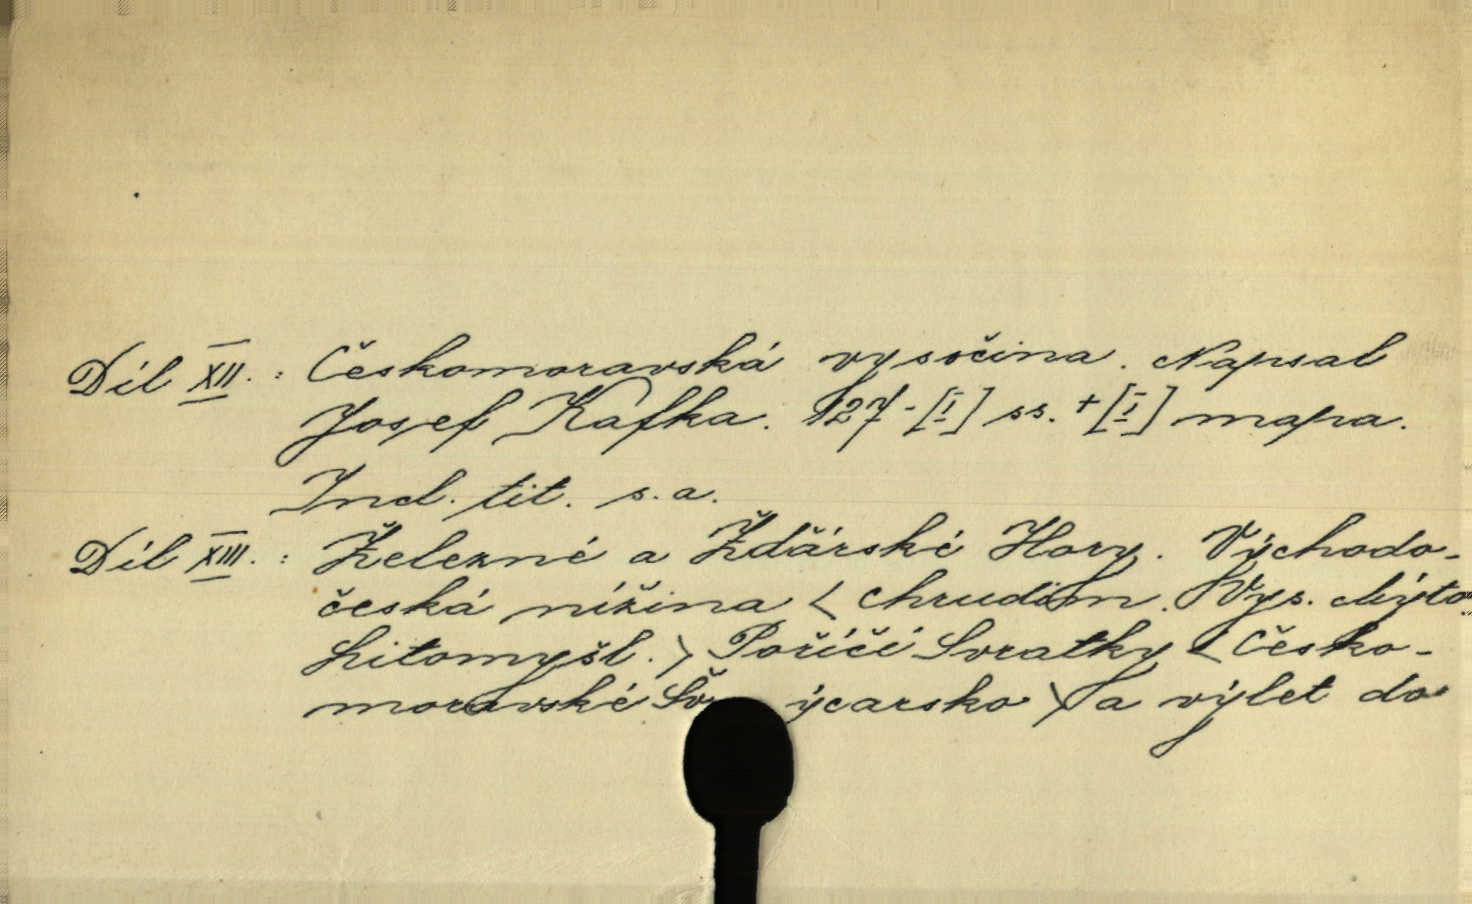 Díl XII. : Českomoravská vysočina. Napsal
Josef Kafka. 127-[I] ss. + [I] mapa.
Incl. tit. s. a.
Díl XIII. : Železné a Žďárské Hory. Východo-
česká nížina < Chrudim. Vys. Mýto
Litomyšl. > Poříčí Svratky < Česko-
moravské Švýcarsko > a výlet do